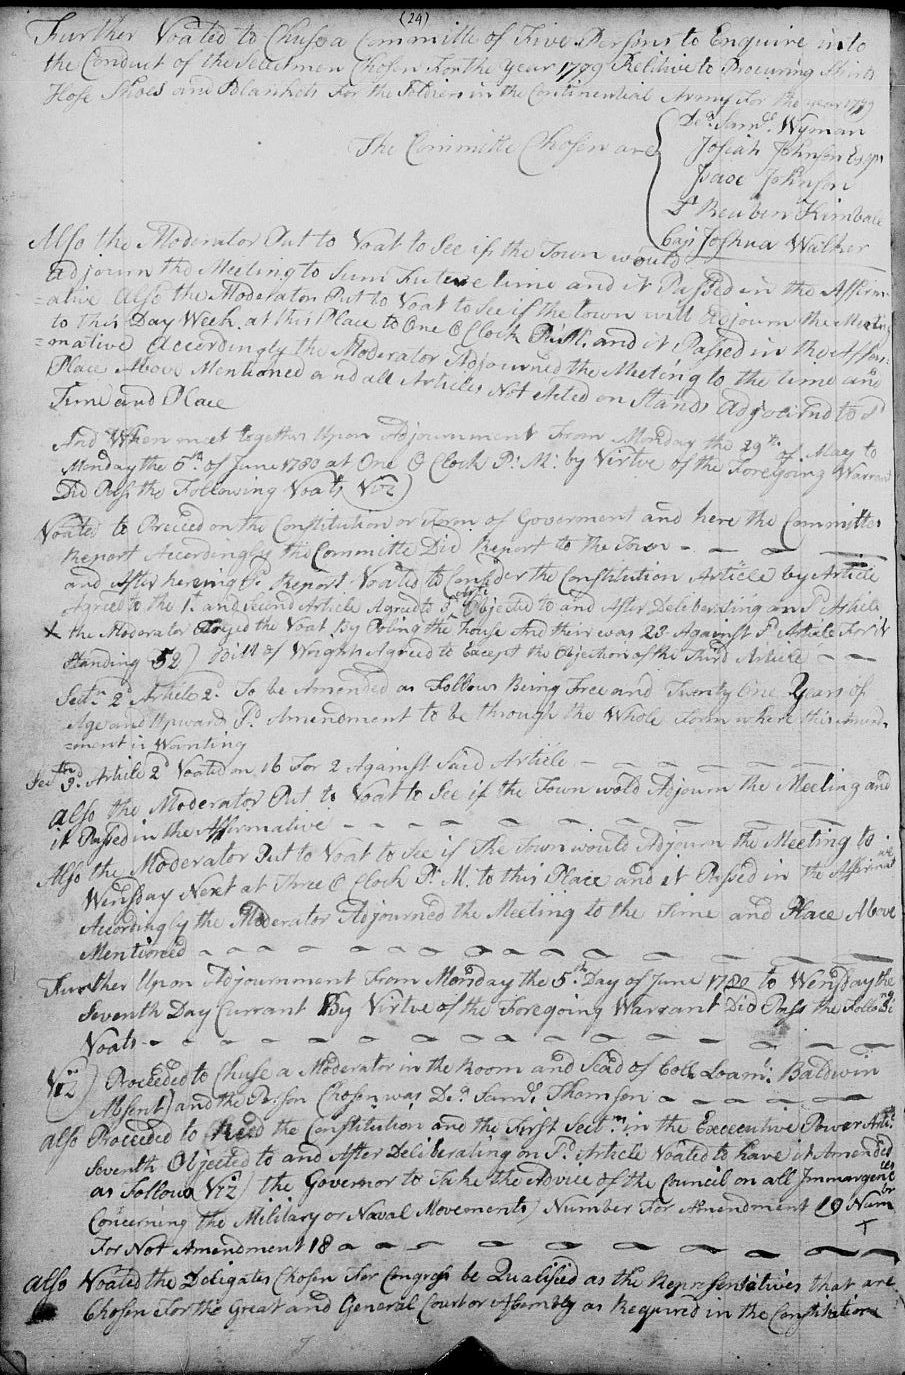 (24)
Further Voated to Chuse a Committe of Five Persons to Enquire into
the Conduct of the Selectmen Chosen For the year 1779 Relitive to Procuring Shirts
Hose Shoes and Blankets For the Soldiers in the Continential Army For the year 1779
The Committe Chosen are
Dea. Saml. Wyman
Josiah Johnson Esqr
Isaac Johnson
Lt Reuben Kimball
Capt Joshua Walker
Also the Moderator Put to Voat to See if the Town would
adjourn the Meeting to Sum Futuere time and it Passed in the Affirm
=ative Also the Moderator Put to Voat to See if the town will Adjourn the Meeting
to this Day Week at this Place to One O Clock P:M: and it Passed in the Affir
=mative Accordingly the Moderator Adjourned the Meeting to the time and
Place Above Mentioned and all Articles Not Acted on Stands Adjournd to sd
Time and Place
And When meet together Upon Adjournment From Monday the 29th of May to
Monday the 5th of June 1780 at One O Clock P: M: by Virtue of the Foregoing Warran
Did Pass the Following Voats Viz)
Voated to Preceed on the Constitution or Form of Goverment and here the Committes
Report Accordingly the Committe Did Report to the Town
and After hereing sd Report Voated to Consider the Constitution Article by Article
Agreed to the 1st and Second Article Agreed to 3d Article Objected to and After Deliberating on sd Article
X the Moderator the Voat By Poling the house And their was 23 Against sd Article For it
Standing 52) Bill of Wright Agreed to Except the Objection of the Third Article
Sectn 2d Article 2d To be Amended as Follows Being Free and Twenty One Years of
Age and Upward sd Amendment to be through the Whole Form where this Amend-
=ment is Wanting
Sectn 3d Article 2d Voated on 16 For 2 Against Said Article
also the Moderator Put to Voat to See if the Town wold Adjourn the Meeting and
it Passed in the Affirmative
Also the Moderator Put to Voat to See if The Town would Adjourn the Meeting to
Wensday Next at Three O Clock P: M. to this Place and it Passed in the Affirmative
Accordingly the Moderator Adjourned the Meeting to the Time and Place Above
Mentioned
Further Upon Adjournment From Monday the 5th Day of June 1780 to Wensday the
Seventh Day Currant By Virtue of the Foregoing Warrant Did Pass the Following
Voats
Viz) Proceeded to Chuse a Moderator in the Room and Stead of Coll Loami Baldwin
Absent) and the Person Chosen was Dea Saml Thomson
also Proceeded to Read the Constitution and the First Sectn in the Excecutive Power Arti.
Seventh Objected to and After Deliberating on sd Article Voated to have it Amended
as Follows (Viz) the Governor to Take the Advice of the Council on all Immargences
Concerning the Military or Naval Movements) Number For Amendment 19 Number
For Not Amendment 18
also Voated the Deligates Chosen For Congress be Qualified as the Representatives that are
Chosen For the Great and General Court or Assembly as Required in the Constitution